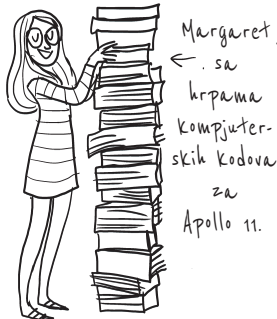 Margaret
sa
hrpama
kompjuter-
skih kodova
za
Apollo 11.